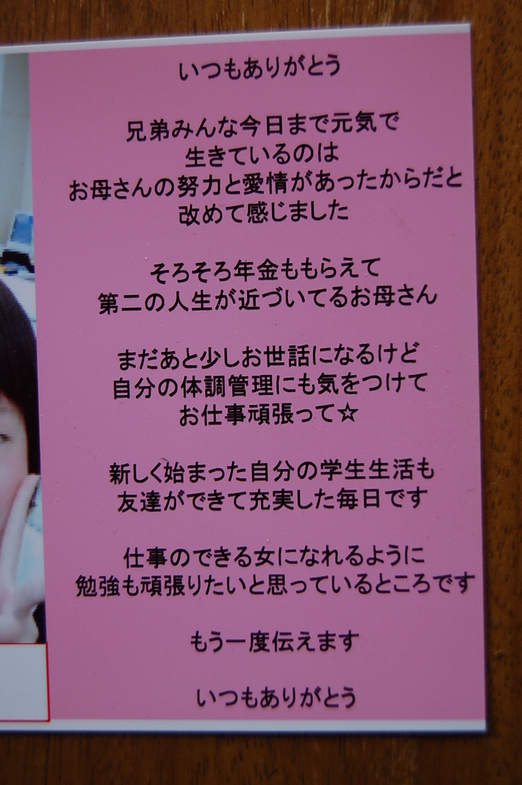 いつもありがとう
兄弟みんな今日まで元気で
生きているのは
お母さんの努力と愛情があったからだと
改めて感じました
そろそろ年金ももらえて
第二の人生が近づいてるお母さん
まだあと少しお世話になるけど
自分の体調管理にも気をつけて
お仕事頑張って☆
新しく始まった自分の学生生活も
友達ができて充実した毎日です
仕事のできる女になれるように
勉強も頑張りたいと思っているところです
もう一度伝えます
いつもありがとう